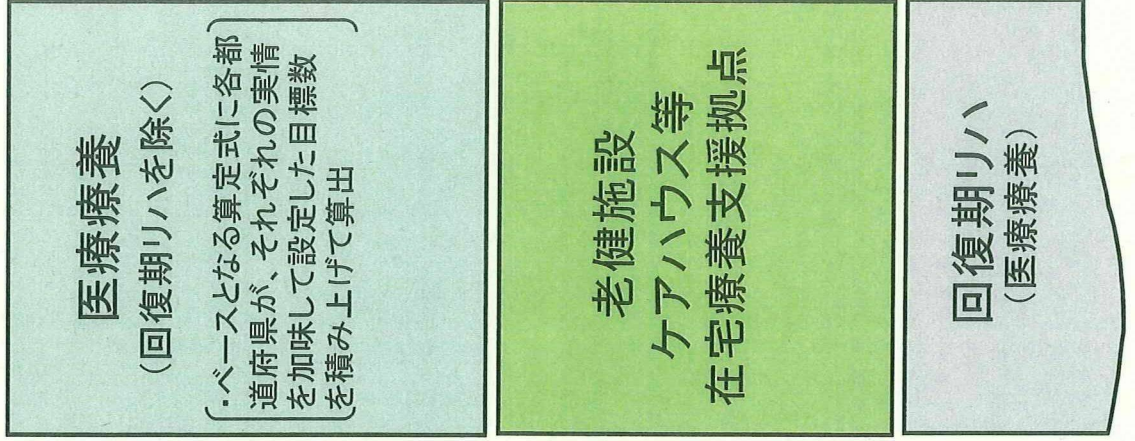 医療療養
（回復期リハを除く）
・ベースとなる算定式に各都
道府県が、それぞれの実情
を加味して設定した目標数
を積み上げて算出
老健施設
ケアハウス等
在宅療養支援拠点
回復期リハ
（医療療養）